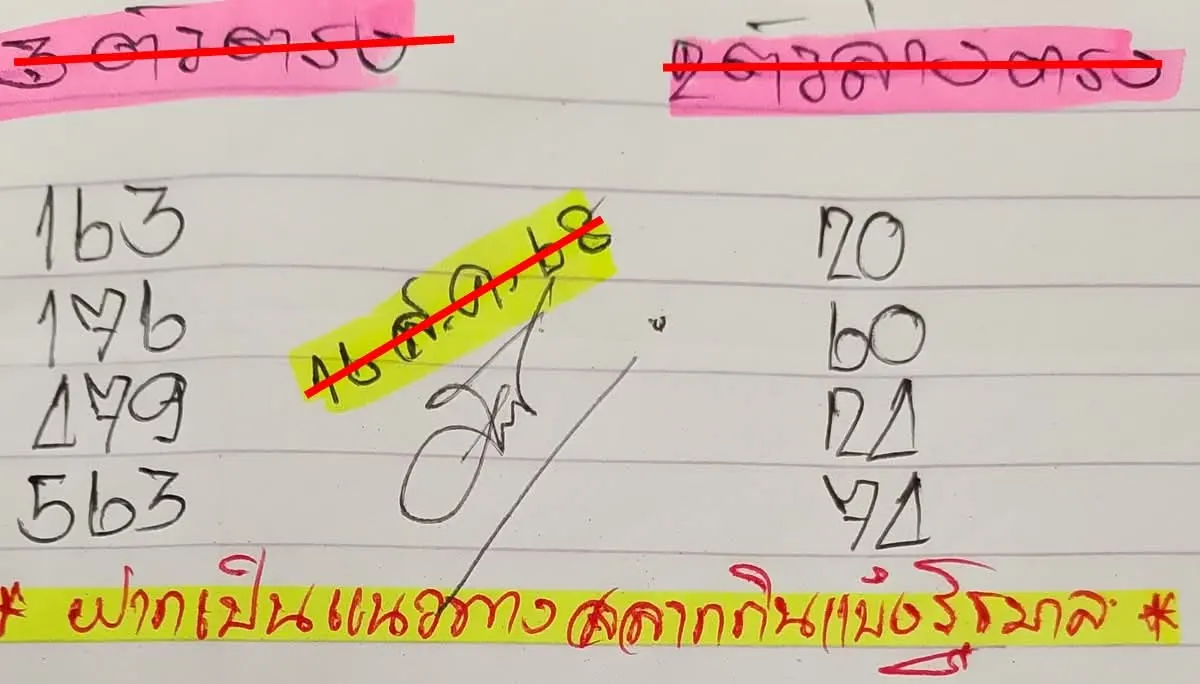 3 ตัวตรง
2 ตัวล่างตรง
163 20
16 ส.ค. 68
176 60
479 24
563 74
* ฝากเป็นแนวทาง สลากกินแบ่งรัฐบาล *